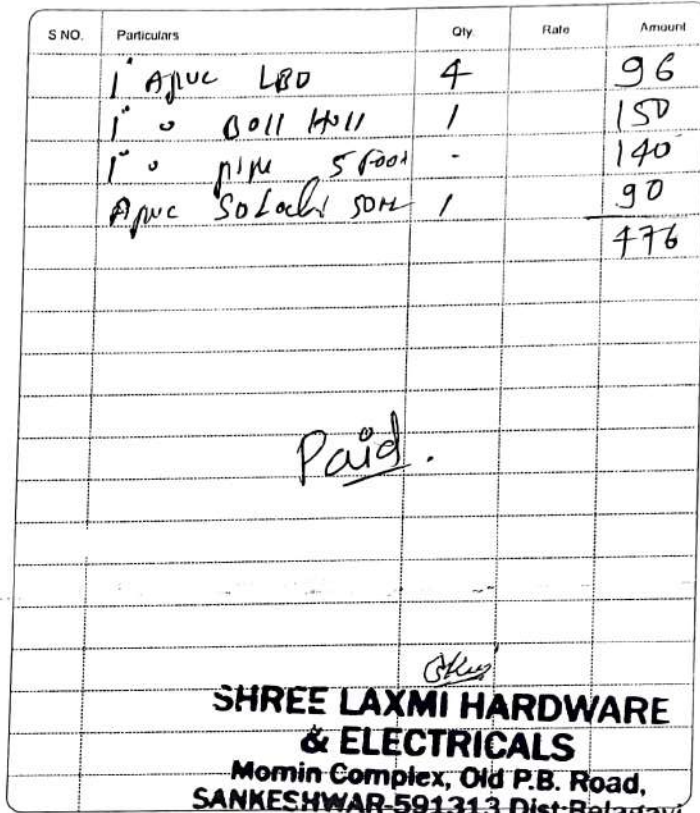 S NO. Particulars Qty. Rate Amount
1" Apvc LBO 4 96
1" " Boll Holl 1 150
1" " pipe 5 Foot - 140
Apvc 50ML 1 90
476
Paid.
SHREE LAXMI HARDWARE
& ELECTRICALS
Momin Complex, Old P.B. Road,
SANKESHWAR-591313 Dist:Belagavi